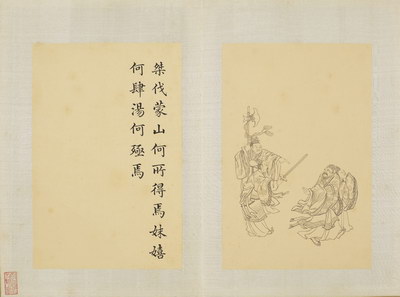 桀伐蒙山何所得焉妹嬉
何肆湯何殛焉